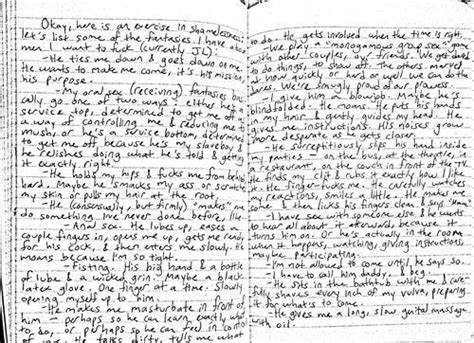 Okay, here is an exercise in shamelessness:
let's list some of the fantasies I have about
men I want to fuck (currently JL):
—He ties me down & goes down on me.
He wants to make me come, it's his mission,
his purpose.
—My oral sex (receiving) fantasies basi-
cally go one of two ways: either he's a
service top, determined to get me off as
a way of controlling me & reducing me to
mush, or he's a service bottom, determined
to get me off because he's my slaveboy &
he relishes doing what he's told & getting
it exactly right.
—He holds my hips & fucks me from behind,
hard. Maybe he smacks my ass or scratches
my skin or pulls my hair at the root.
—He consensually, but firmly "makes" me
do something I've never done before, like
—Anal sex. He lubes up, eases a
couple fingers in, opens me up, gets me ready
for his cock, & then enters me slowly. He
moans because I'm so tight.
—Fisting. His big hand & a bottle
of lube & a wicked grin. Maybe a black
latex glove. One finger at a time. Slowly
opening myself up to him.
—He makes me masturbate in front of
him — perhaps so he can learn exactly what
to do, or perhaps so he can feel in control
of me. He talks dirty, tells me what
to do. He gets involved when the time is right.
—We play a "monogamous group sex" game
with other couples, our friends. We get dared
to do things, to show off. The others marvel
at how quickly or hard or well we can do the
dares. We're smugly proud of our prowess.
—I give him a blowjob. Maybe he's
blindfolded. He moans. He puts his hands
in my hair & gently guides my head. He
gives me instructions. His noises grow
more desperate as he gets closer.
—He surreptitiously slips his hand inside
my panties — on the bus, at the theatre, in
a restaurant, on the couch in front of the TV.
He finds my clit & rubs it exactly how I like
it. He finger-fucks me. He carefully watches
my reactions, smiles a little. He makes me
come & then licks his fingers clean, & says "Mmm."
—I have sex with someone else & he wants
to hear all about it afterwards because it
turns him on. Or he's actually in the room
when it happens, watching, giving instructions,
maybe participating.
—I'm not allowed to come until he says so.
I have to call him daddy, & beg.
—He sits in the bathtub with me & care-
fully shaves every inch of my vulva, preparing
it for what's to come.
—He gives me a long, slow guitar massage
with oil.